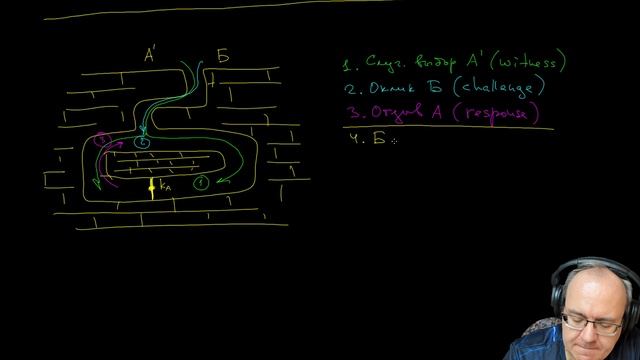 А' Б
1. Случ. выбор А' (witness)
2. Оклик Б (challenge)
3. Отзыв А (response)
4. Б
3 2
kA 1